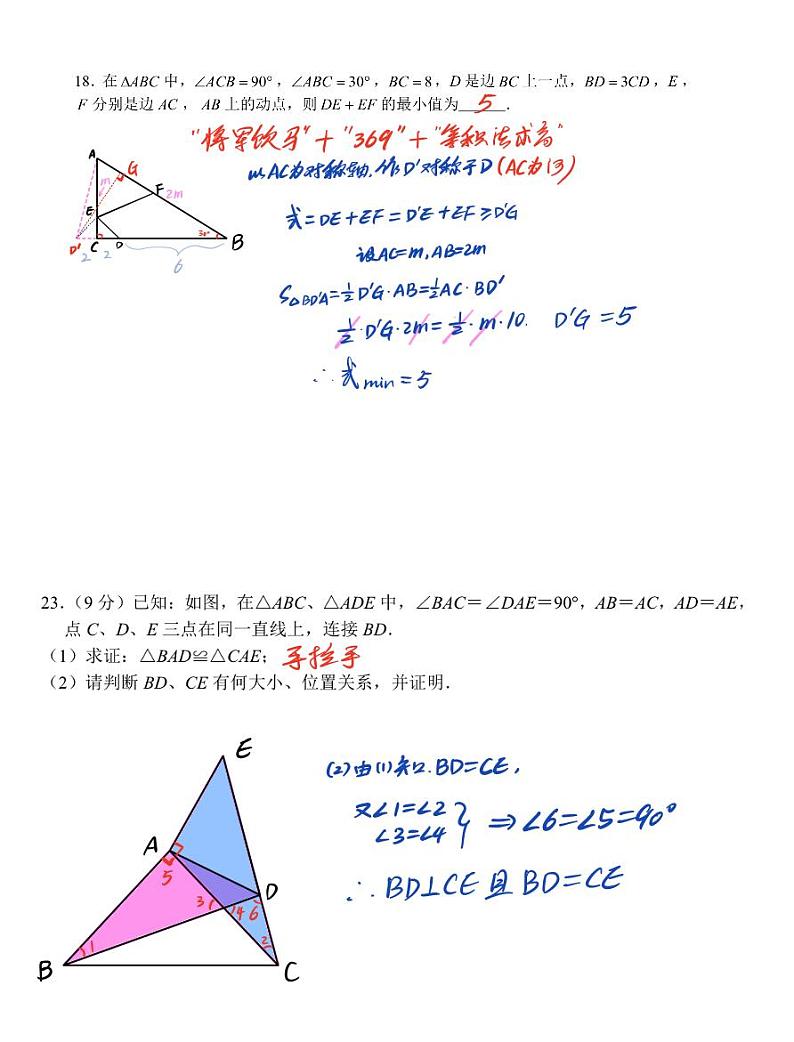 18．在 ΔABC 中，∠ACB = 90°，∠ABC = 30°，BC = 8，D 是边 BC 上一点，BD = 3CD，E，
F 分别是边 AC，AB 上的动点，则 DE + EF 的最小值为 5 ．
"将军饮马"＋"369"＋"等积法求高"
以AC为对称轴.作D'对称于D(AC为河)
A
G
m
F
2m
E
30°
D'
C
D
B
2
2
6
式=DE+EF=D'E+EF≥D'G
设AC=m,AB=2m
S△BD'A=½D'G·AB=½AC·BD'
½·D'G·2m=½·m·10. D'G=5
∴式min=5
23．（9 分）已知：如图，在△ABC、△ADE 中，∠BAC＝∠DAE＝90°，AB＝AC，AD＝AE，
点 C、D、E 三点在同一直线上，连接 BD．
（1）求证：△BAD≌△CAE；手拉手
（2）请判断 BD、CE 有何大小、位置关系，并证明．
E
A
5
3
4
6
D
1
2
B
C
(2)由(1)知.BD=CE,
又∠1=∠2
∠3=∠4
} ⇒∠6=∠5=90°
∴BD⊥CE且BD=CE